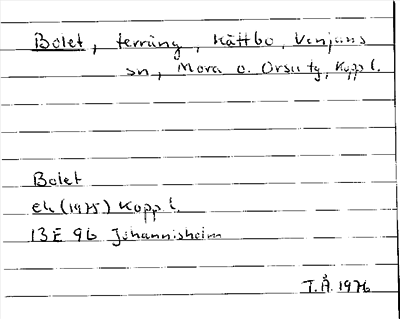 Bolet, terräng, Kättbo, Venjans
sn, Mora o. Orsa tg, Kopp l.
Bolet
ek (1975) Kopp l.
13E 9b Johannisheim
T.Å. 1976